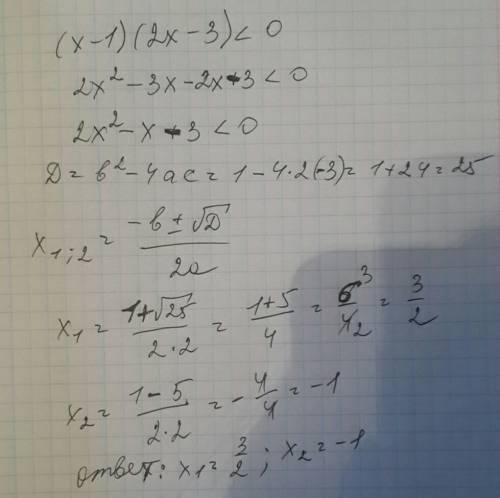 (x-1)(2x-3)<0
2x²-3x-2x-3<0
2x²-x-3<0
D=b²-4ac=1-4·2(-3)=1+24=25
x₁;₂=(-b±√D)/2a
x₁=(1+√25)/(2·2)=(1+5)/4=6³/4₂=3/2
x₂=(1-5)/(2·2)=-4/4=-1
ответ: x₁=3/2; x₂=-1